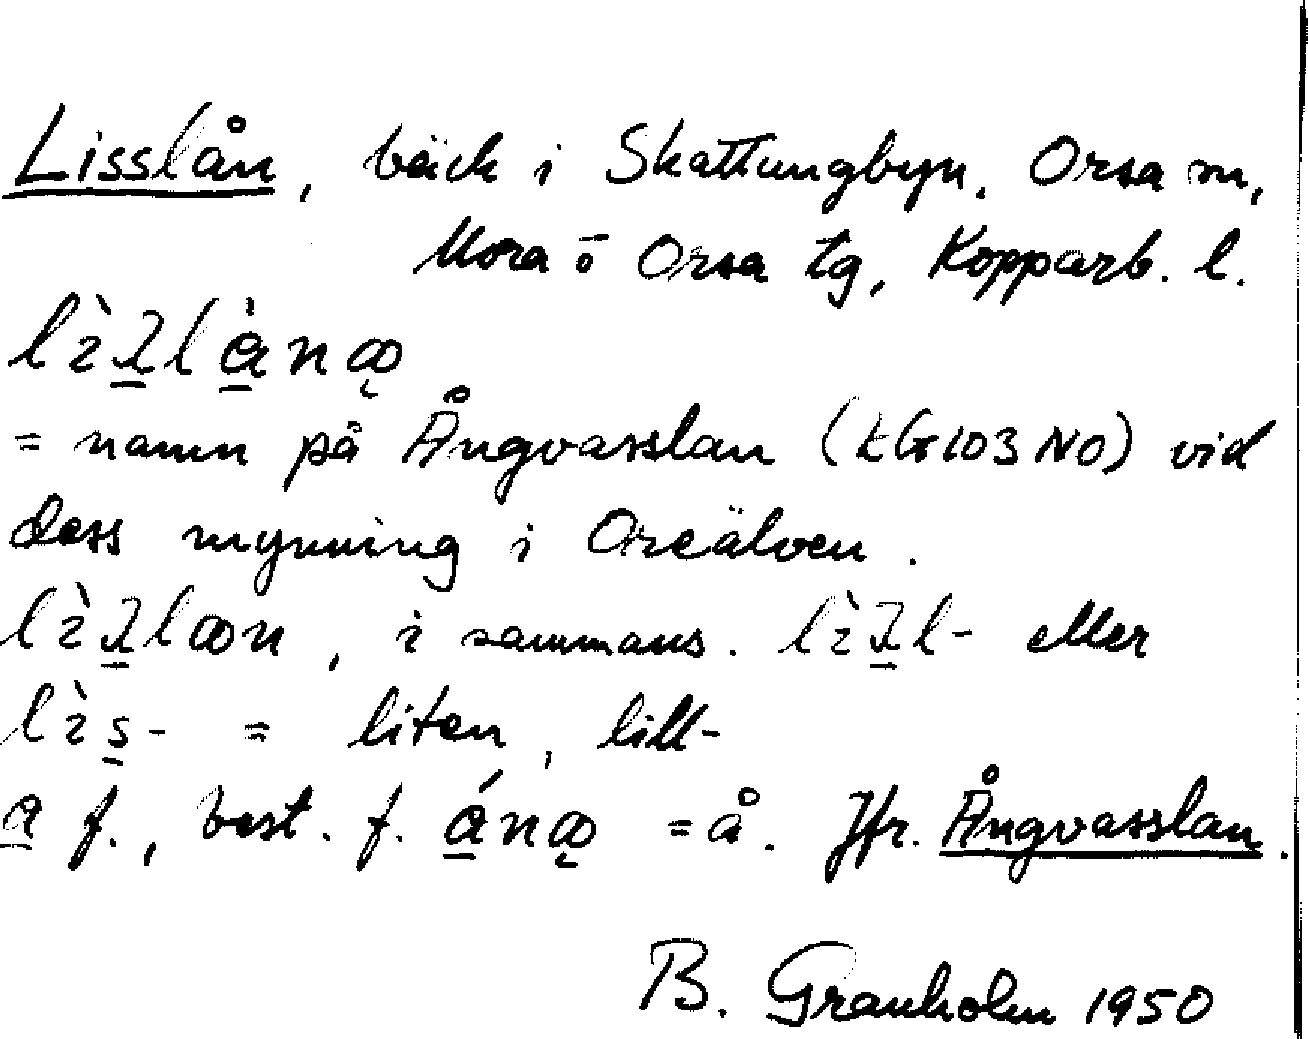 Lisslån, bäck i Skattungbyn, Orsa sn,
Mora o Orsa tg, Kopparb. l.
= namn på Ångvasslan (kG103NO) vid
dess mynning i Oreälven.
, i sammans. eller
= liten, lill-
a f., best. f. = å. Jfr. Ångvasslan.
B. Granholm 1950